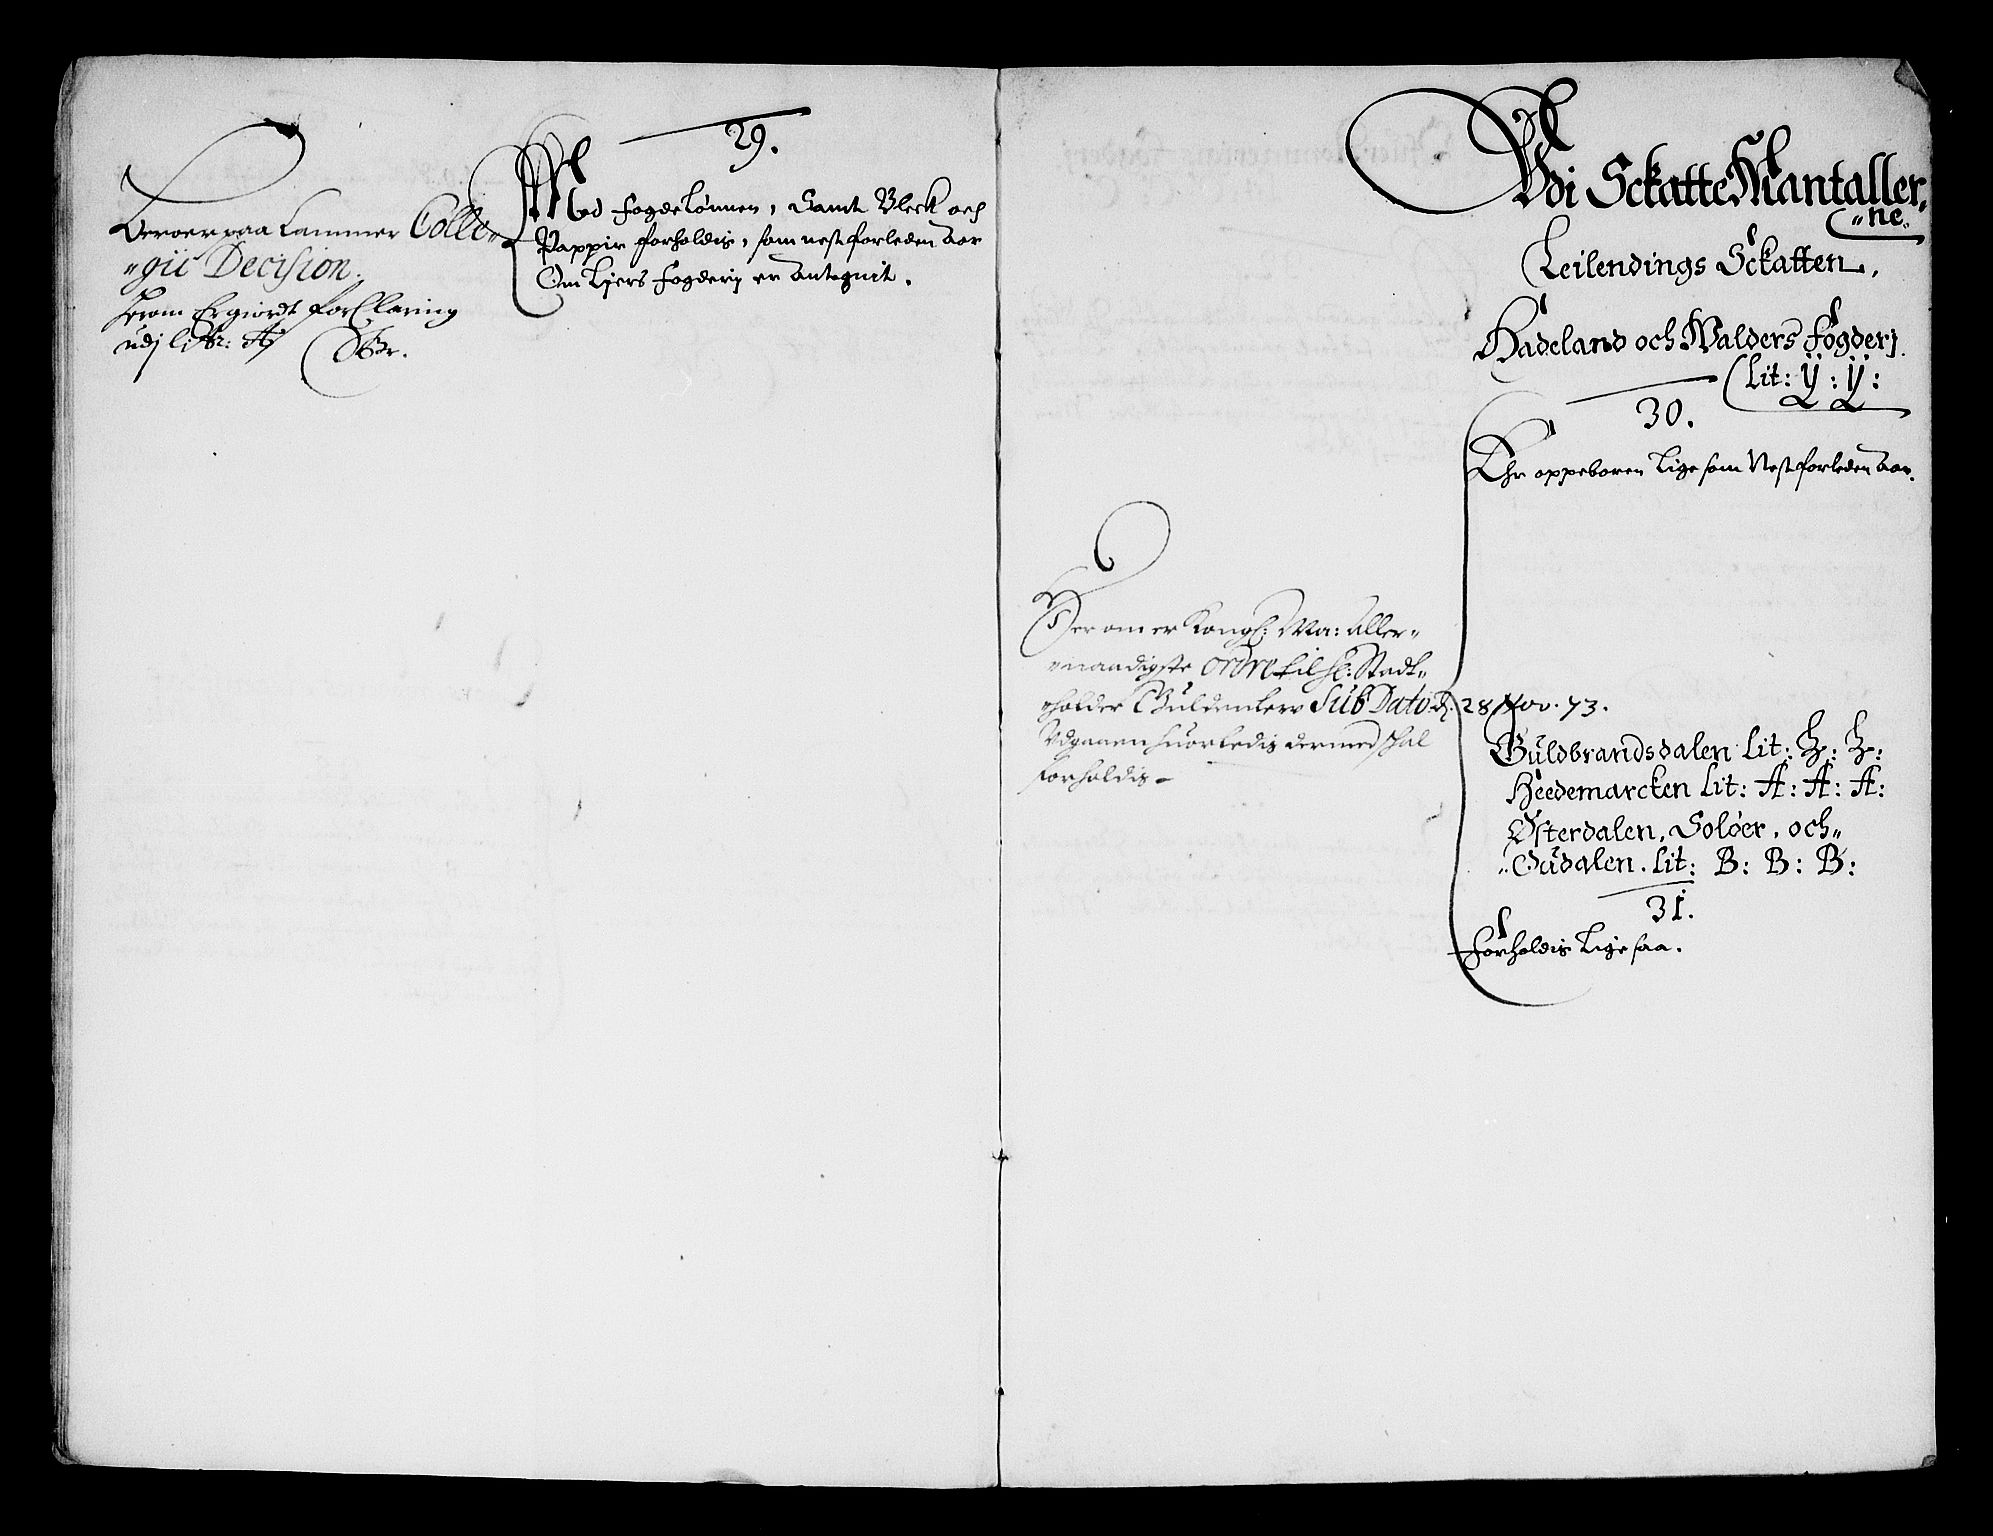 Deroer paa Cammer Colle„
„gii Decision.
Herom Er giordt forClaring
udj litr: A
29.
Med fogdelønnen, Samt Bleck och
Pappir forholdis, som nestforleden Aar
Om Lyers fogderij er Antegnit.
Udi SckatteMantaller„
„ne.
Leilendings Sckatten.
Hadeland och Walders fogderj.
Lit: Y: Y:
30.
Ehr oppeboren Lige som Nestforleden Aar.
Der om er Kongl: Ma: Aller„
„naadigste ordre til H: Stadt„
„holder Guldenlew Sub Dato d. 28 Nov. 73.
Udgaaen huorledis dermed schal
forholdis
Guldbrandsdalen Lit: Z: Z:
Heedemarcken Lit: A: A: A:
Østerdalen, Soløer, och„
„Oudalen. Lit: B: B: B:
31.
forholdis Lige saa.